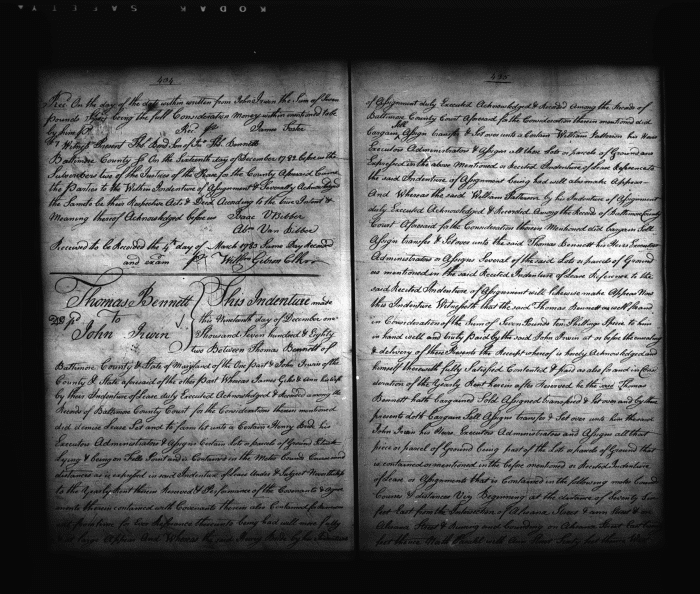 KODAK SAFETY
404
Recd On the day of the date within written from John Irwin the Sum of Seven
pounds being the full Consideration Money within mentioned to be
by him pd. Recd pr James Foster
Witness Present Thos Bond Son of Jno Thos Bennett
Baltimore County Ss On the Sixteenth day of December 1782 before us the
Subscribers two of the Justices of the Peace for the County Aforesaid Came
the Parties to the Within Indenture of Assignment & Severally Acknowledged
the Same to be their Respective Acts & Deed According to the true Intent &
Meaning thereof Acknowledged before us Isaac VBibber
Abm Van Bibber
Received to be Recorded the 4th day of March 1783 Same Day Recorded
and exam pr Willm Gibson Clk
Thomas Bennett
to
John Irwin
This Indenture made
this Nineteenth day of December one
Thousand Seven hundred & Eighty
two Between Thomas Bennett of
Baltimore County & State of Maryland of the One Part & John Irwin of the
County & State aforesaid of the other Part Whereas James Giles & Ann his Wife
by their Indenture of lease duly Executed Acknowledged & Recorded among the
Records of Baltimore County Court for the Consideration therein mentioned
did demise Lease Set and to farm let unto a Certain Henry Bond his
Executors Administrators & Assigns Certain Lots or parcels of Ground
Lying & being on Fells Point and is Contained in the Metes Courses and
distances as is expressed in said Indenture of lease Under & Subject Nevertheless
to the Yearly Rent therein Reserved & Performance of the Covenants & agree
ments therein contained with Covenants Therein also Contained for
Reference thereunto being had will more fully
& at large Appear And Whereas the said Henry Bond by his Indenture
405
of Assignment duly Executed Acknowledged & Recorded Among the Records of
Baltimore County Court Aforesaid for the Consideration therein mentioned did
Sell
Bargain Assign transfer & Set over unto a Certain William Patterson his Heirs
Executors Administrators & Assigns all these Lots or parcels of Ground as
Expressed in the above Mentioned or Recited Indenture of lease Reference to
the said Indenture of Assignment being had will also make Appear
And Whereas the said William Patterson by his Indenture of Assignment
duly Executed Acknowledged & Recorded Among the Records of Baltimore County
Court Aforesaid for the Consideration therein Mentioned did Bargain Sell
Assign transfer & Set over unto the said Thomas Bennett his Heirs Executors
Administrators or Assigns Several of the said Lots or parcels of Ground
as mentioned in the said Recited Indenture of lease Reference to the
said Recited Indenture of Assignment will likewise make Appear Now
this Indenture Witnesseth that the said Thomas Bennett as well for and
in Consideration of the Sum of Seven Pounds ten Shillings Specie to him
in hand well and truly Paid by the said John Irwin at or before the sealing
& delivery of these Presents the Receipt whereof is hereby Acknowledged and
himself therewith fully Satisfied Contented & paid as also for and in Consi
deration of the Yearly Rent herein after Reserved he the said Thomas
Bennett hath bargained Sold Assigned transfered & Set over and by these
presents doth Bargain Sell Assign transfer & Set over unto him the said
John Irwin his Heirs Executors Administrators and Assigns all that
piece or parcel of Ground being part of the Lots or parcels of Ground that
is contained or mentioned in the before mentioned or Recited Indenture
of lease or Assignment that is contained in the following metes Courses
Courses & distances Viz Beginning at the distance of Seventy five
feet East from the Intersection of Alisanna Street & Ann Street
Alisanna Street & Running and bounding on Alisanna Street East
feet thence North Parallel with Ann Street Sixty feet thence West